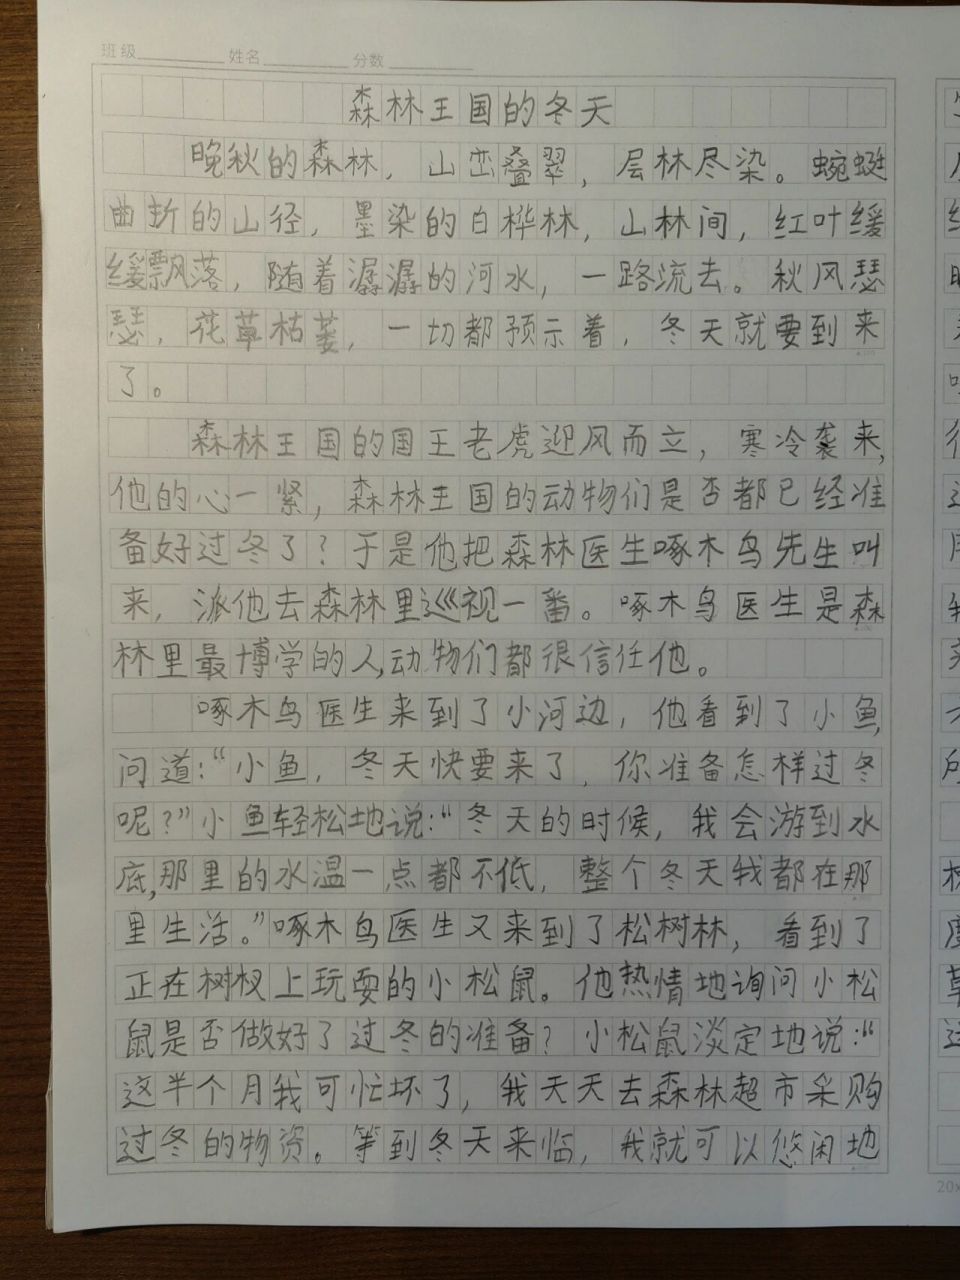 班级 姓名 分数
森林王国的冬天
晚秋的森林，山峦叠翠，层林尽染。蜿蜒
曲折的山径，墨染的白桦林，山林间，红叶缓
缓飘落，随着潺潺的河水，一路流去。秋风瑟
瑟，花草枯萎，一切都预示着，冬天就要到来
了。
森林王国的国王老虎迎风而立，寒冷袭来，
他的心一紧，森林王国的动物们是否都已经准
备好过冬了？于是他把森林医生啄木鸟先生叫
来，派他去森林里巡视一番。啄木鸟医生是森
林里最博学的人，动物们都很信任他。
啄木鸟医生来到了小河边，他看到了小鱼，
问道：“小鱼，冬天快要来了，你准备怎样过冬
呢？”小鱼轻松地说：“冬天的时候，我会游到水
底，那里的水温一点都不低，整个冬天我都在那
里生活。”啄木鸟医生又来到了松树林，看到了
正在树杈上玩耍的小松鼠。他热情地询问小松
鼠是否做好了过冬的准备？小松鼠淡定地说：“
这半个月我可忙坏了，我天天去森林超市采购
过冬的物资。等到冬天来临，我就可以悠闲地